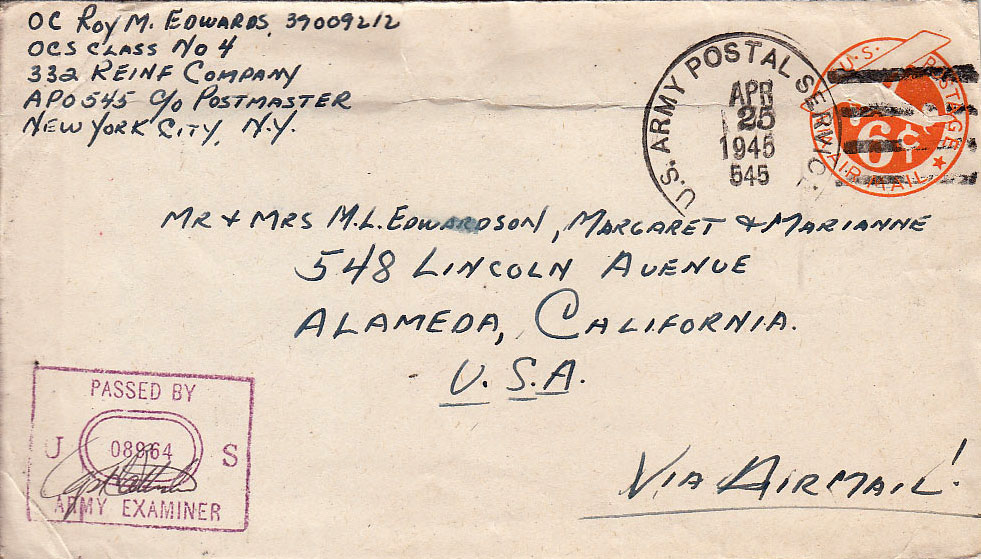 OC Roy M. Edwards, 39009212
OCS Class No 4
332 Reinf Company
APO 545 c/o Postmaster
New York City, N.Y.
U.S. ARMY POSTAL SERVICE
APR
25
1945
545
U.S. POSTAGE
6¢
AIR MAIL
Mr + Mrs M.L. Edwardson, Margaret & Marianne
548 Lincoln Avenue
Alameda, California.
U.S.A.
PASSED BY
U 08964 S
ARMY EXAMINER
Via Airmail!